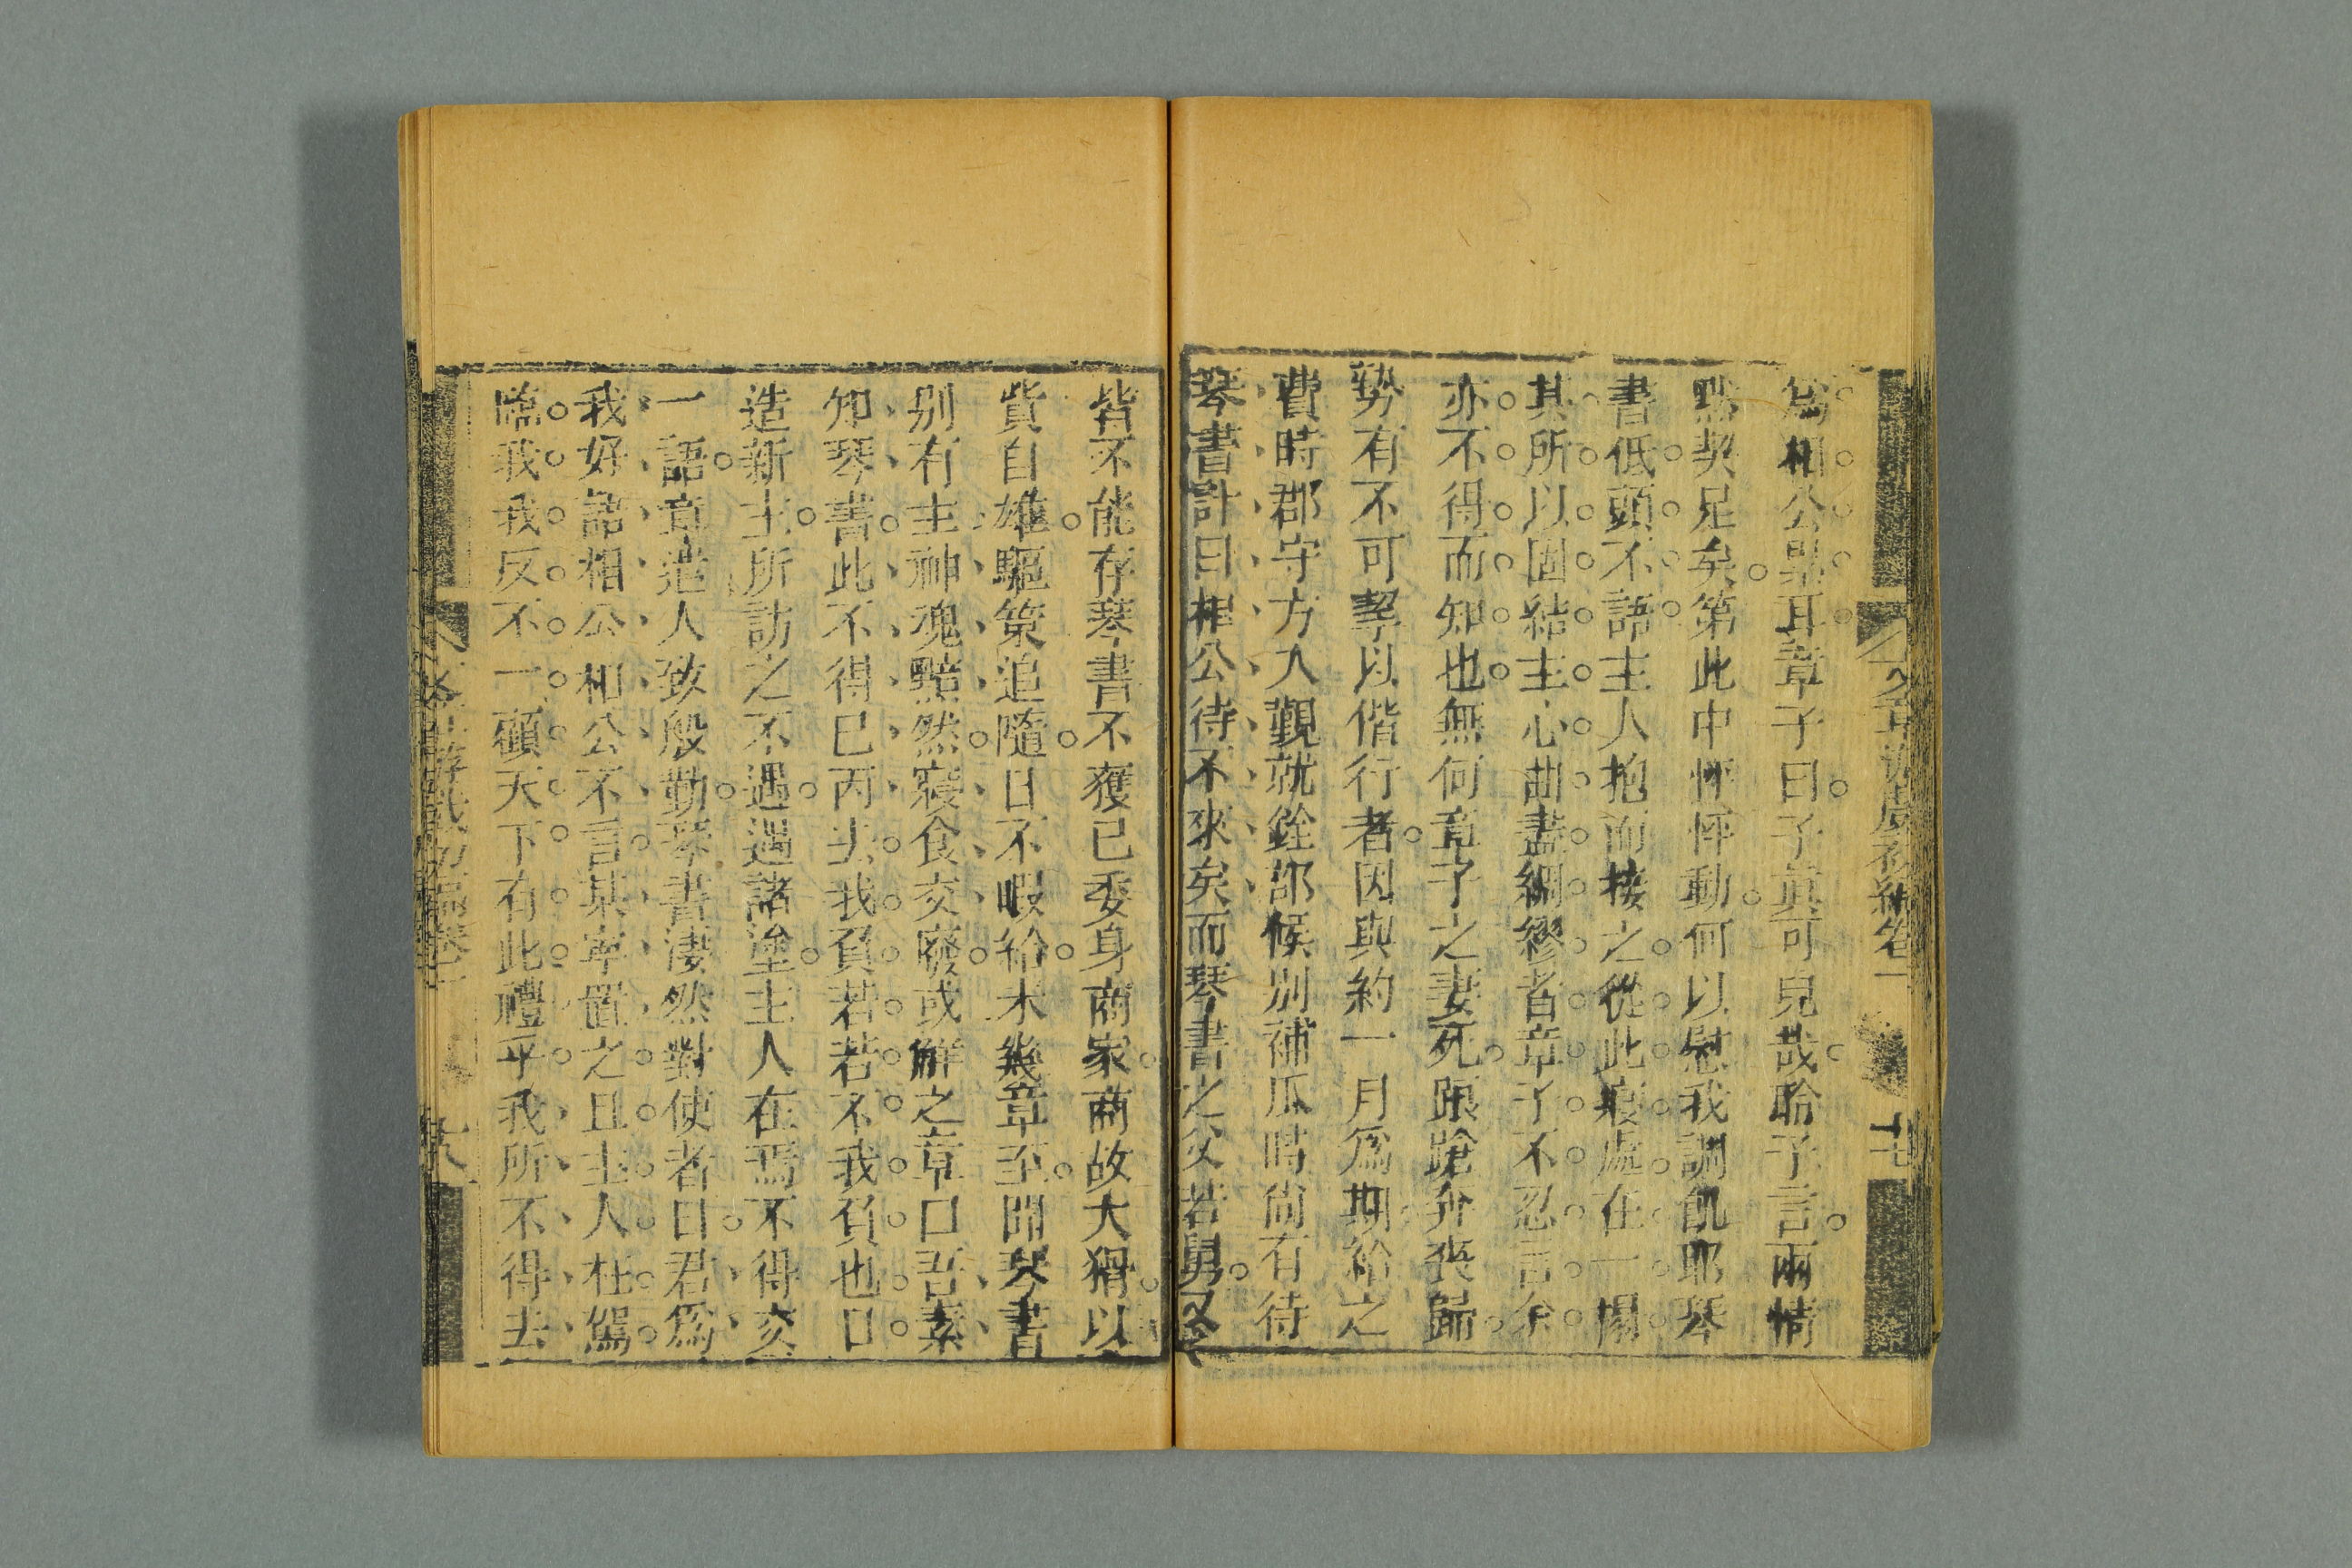 爲相公喪耳章子曰子真可兒哉聆子言兩情
點契足矣第此中怦怦動何以慰我調飢耶琴
書低頭不語主人抱而接之從此寢處在一榻
其所以固結主心曲盡綢繆者章子不忍言余
亦不得而知也無何章子之妻死踉蹌奔喪歸
勢有不可挈以偕行者因與約一月爲期給之
費時郡守方入覲就銓郡候別補瓜時尚有待
琴書計日相公待不來矣而琴書之父若舅又
皆不能存琴書不獲已委身商家商故大猾以
貲自雄驅策追隨日不暇給未幾章至聞琴書
别有主神魂黯然寢食交廢或觧之章曰吾素
知琴書此不得已丙去我負若若不我負也日
造新主所訪之不遇遇諸塗主人在焉不得交
一語章遣人致殷勤琴書淒然對使者曰君爲
我好語相公相公不言某寧置之且主人枉駕
臨我我反不一顧天下有此禮乎我所不得去